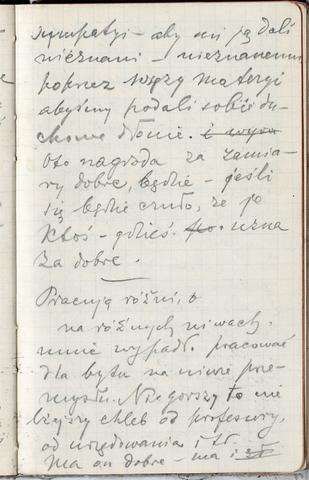 sympatyi – aby mi ją dali
nieznani – nieznanemu
poprzez węzły materyi
abyśmy podali sobie du-
chowe dłonie.
Oto nagroda za zamia-
ry dobre, będzie – jeśli
się będzie czuło, że je
Ktoś – gdzieś. uzna
za dobre.
Pracują różni,
na różnych niwach,
mnie wypadł. pracować
dla bytu na niwie prze-
mysłu. Nie gorszy to nie
lżejszy chleb od profesury,
od urzędowania itd.
Ma on dobre – ma i